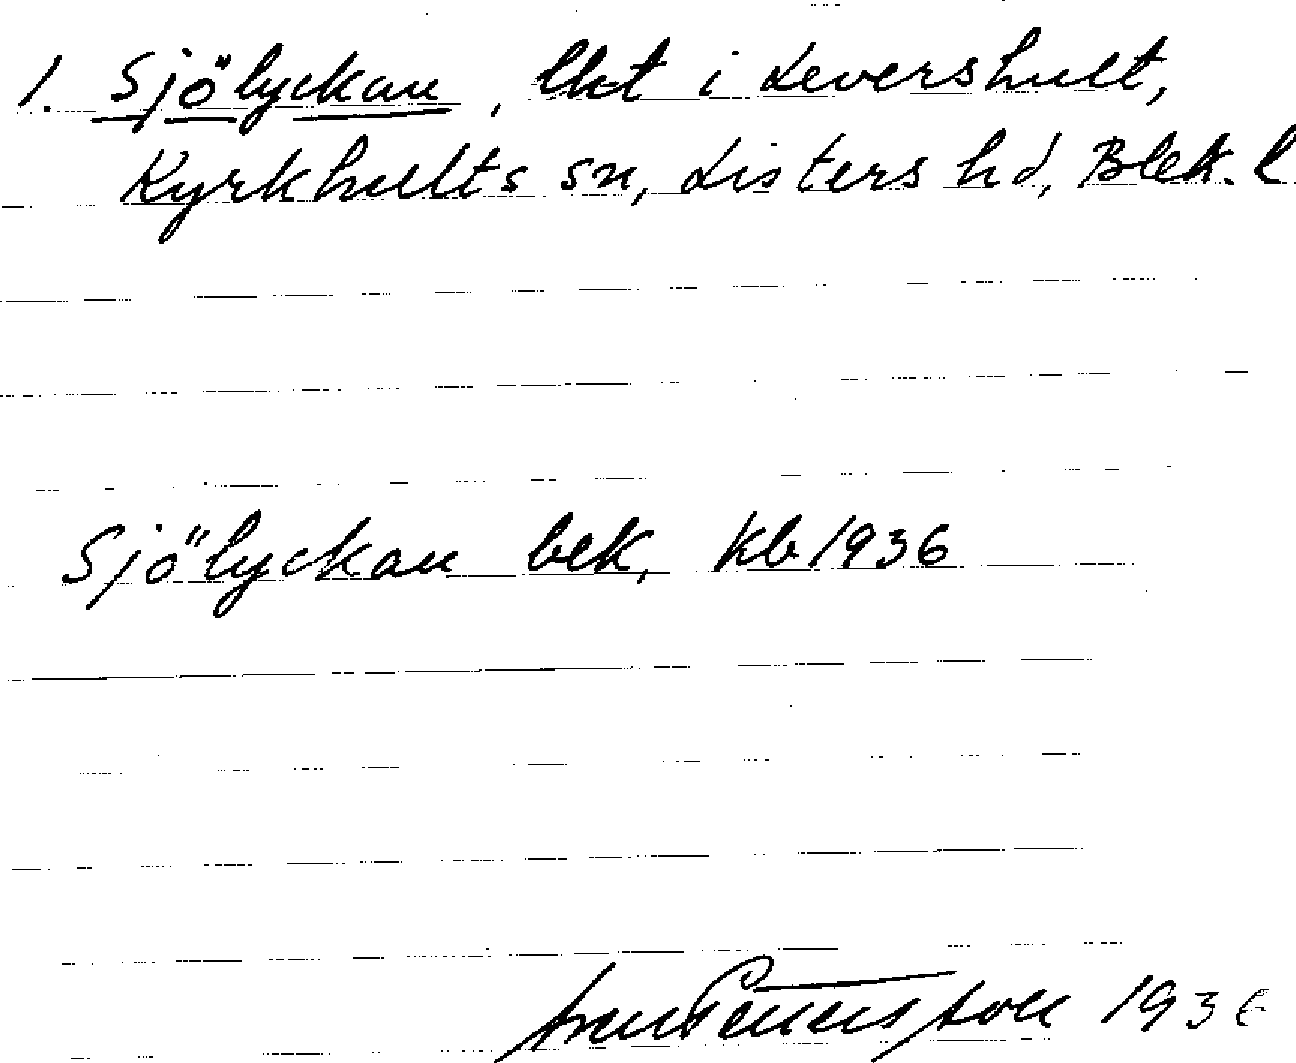 1. Sjölyckan, lht i Levershult,
Kyrkhults sn, Listers hd, Blek. l
Sjölyckan bek, kb 1936
1936